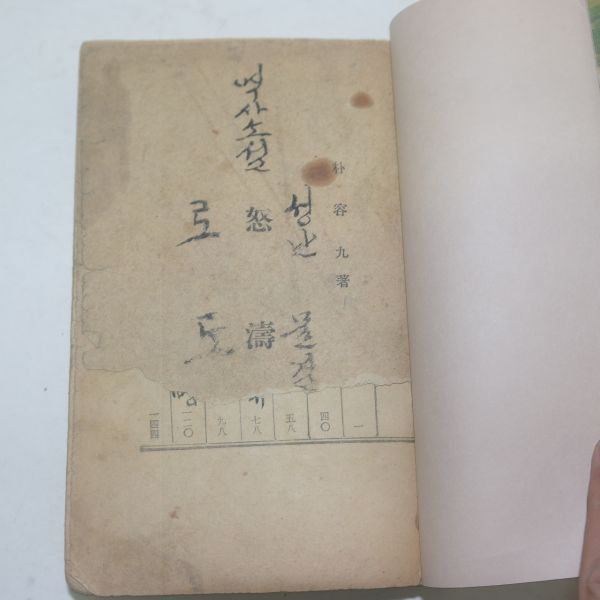 朴容九著
성난 물결
역사소설
怒濤
로도
一
四〇
五八
七八
九八
一二〇
一四四